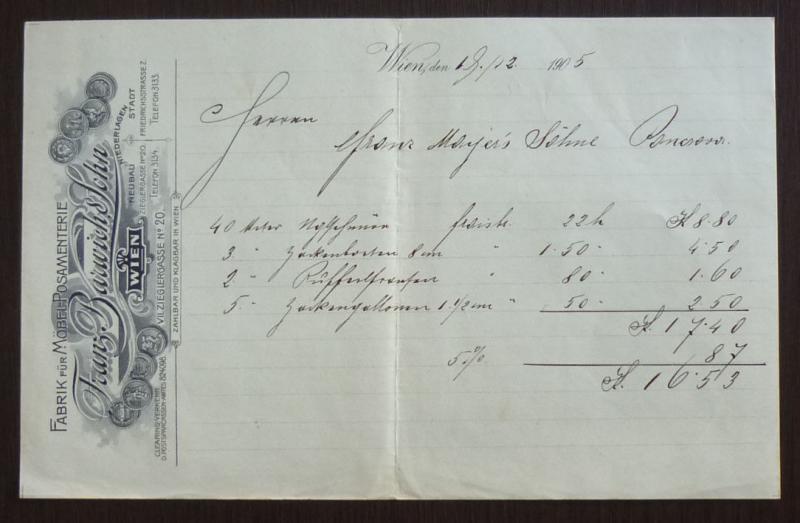 FABRIK FÜR MÖBEL-POSAMENTERIE
Franz Barwich's Sohn
WIEN
VII. ZIEGLERGASSE No 20.
NIEDERLAGEN
NEUBAU
ZIEGLERGASSE No 20.
TELEFON 3134.
STADT
FRIEDRICHSSTRASSE 2.
TELEFON 3133.
CLEARING-VERKEHR
D. POSTSPARCASSEN-AMTES 824098.
ZAHLBAR UND KLAGBAR IN WIEN
Wien, den 19./12. 1905
Herren
Franz Mayer's Söhne Pancsova.
40 Meter 22 h K 8.80
3 " Zackenborten 8 cm " 1.50 " 4.50
2 " " 80 " 1.60
5 " Zackengallonen 1 1/2 cm " 50 " 2.50
K. 17.40
5 % 87
K. 16.53